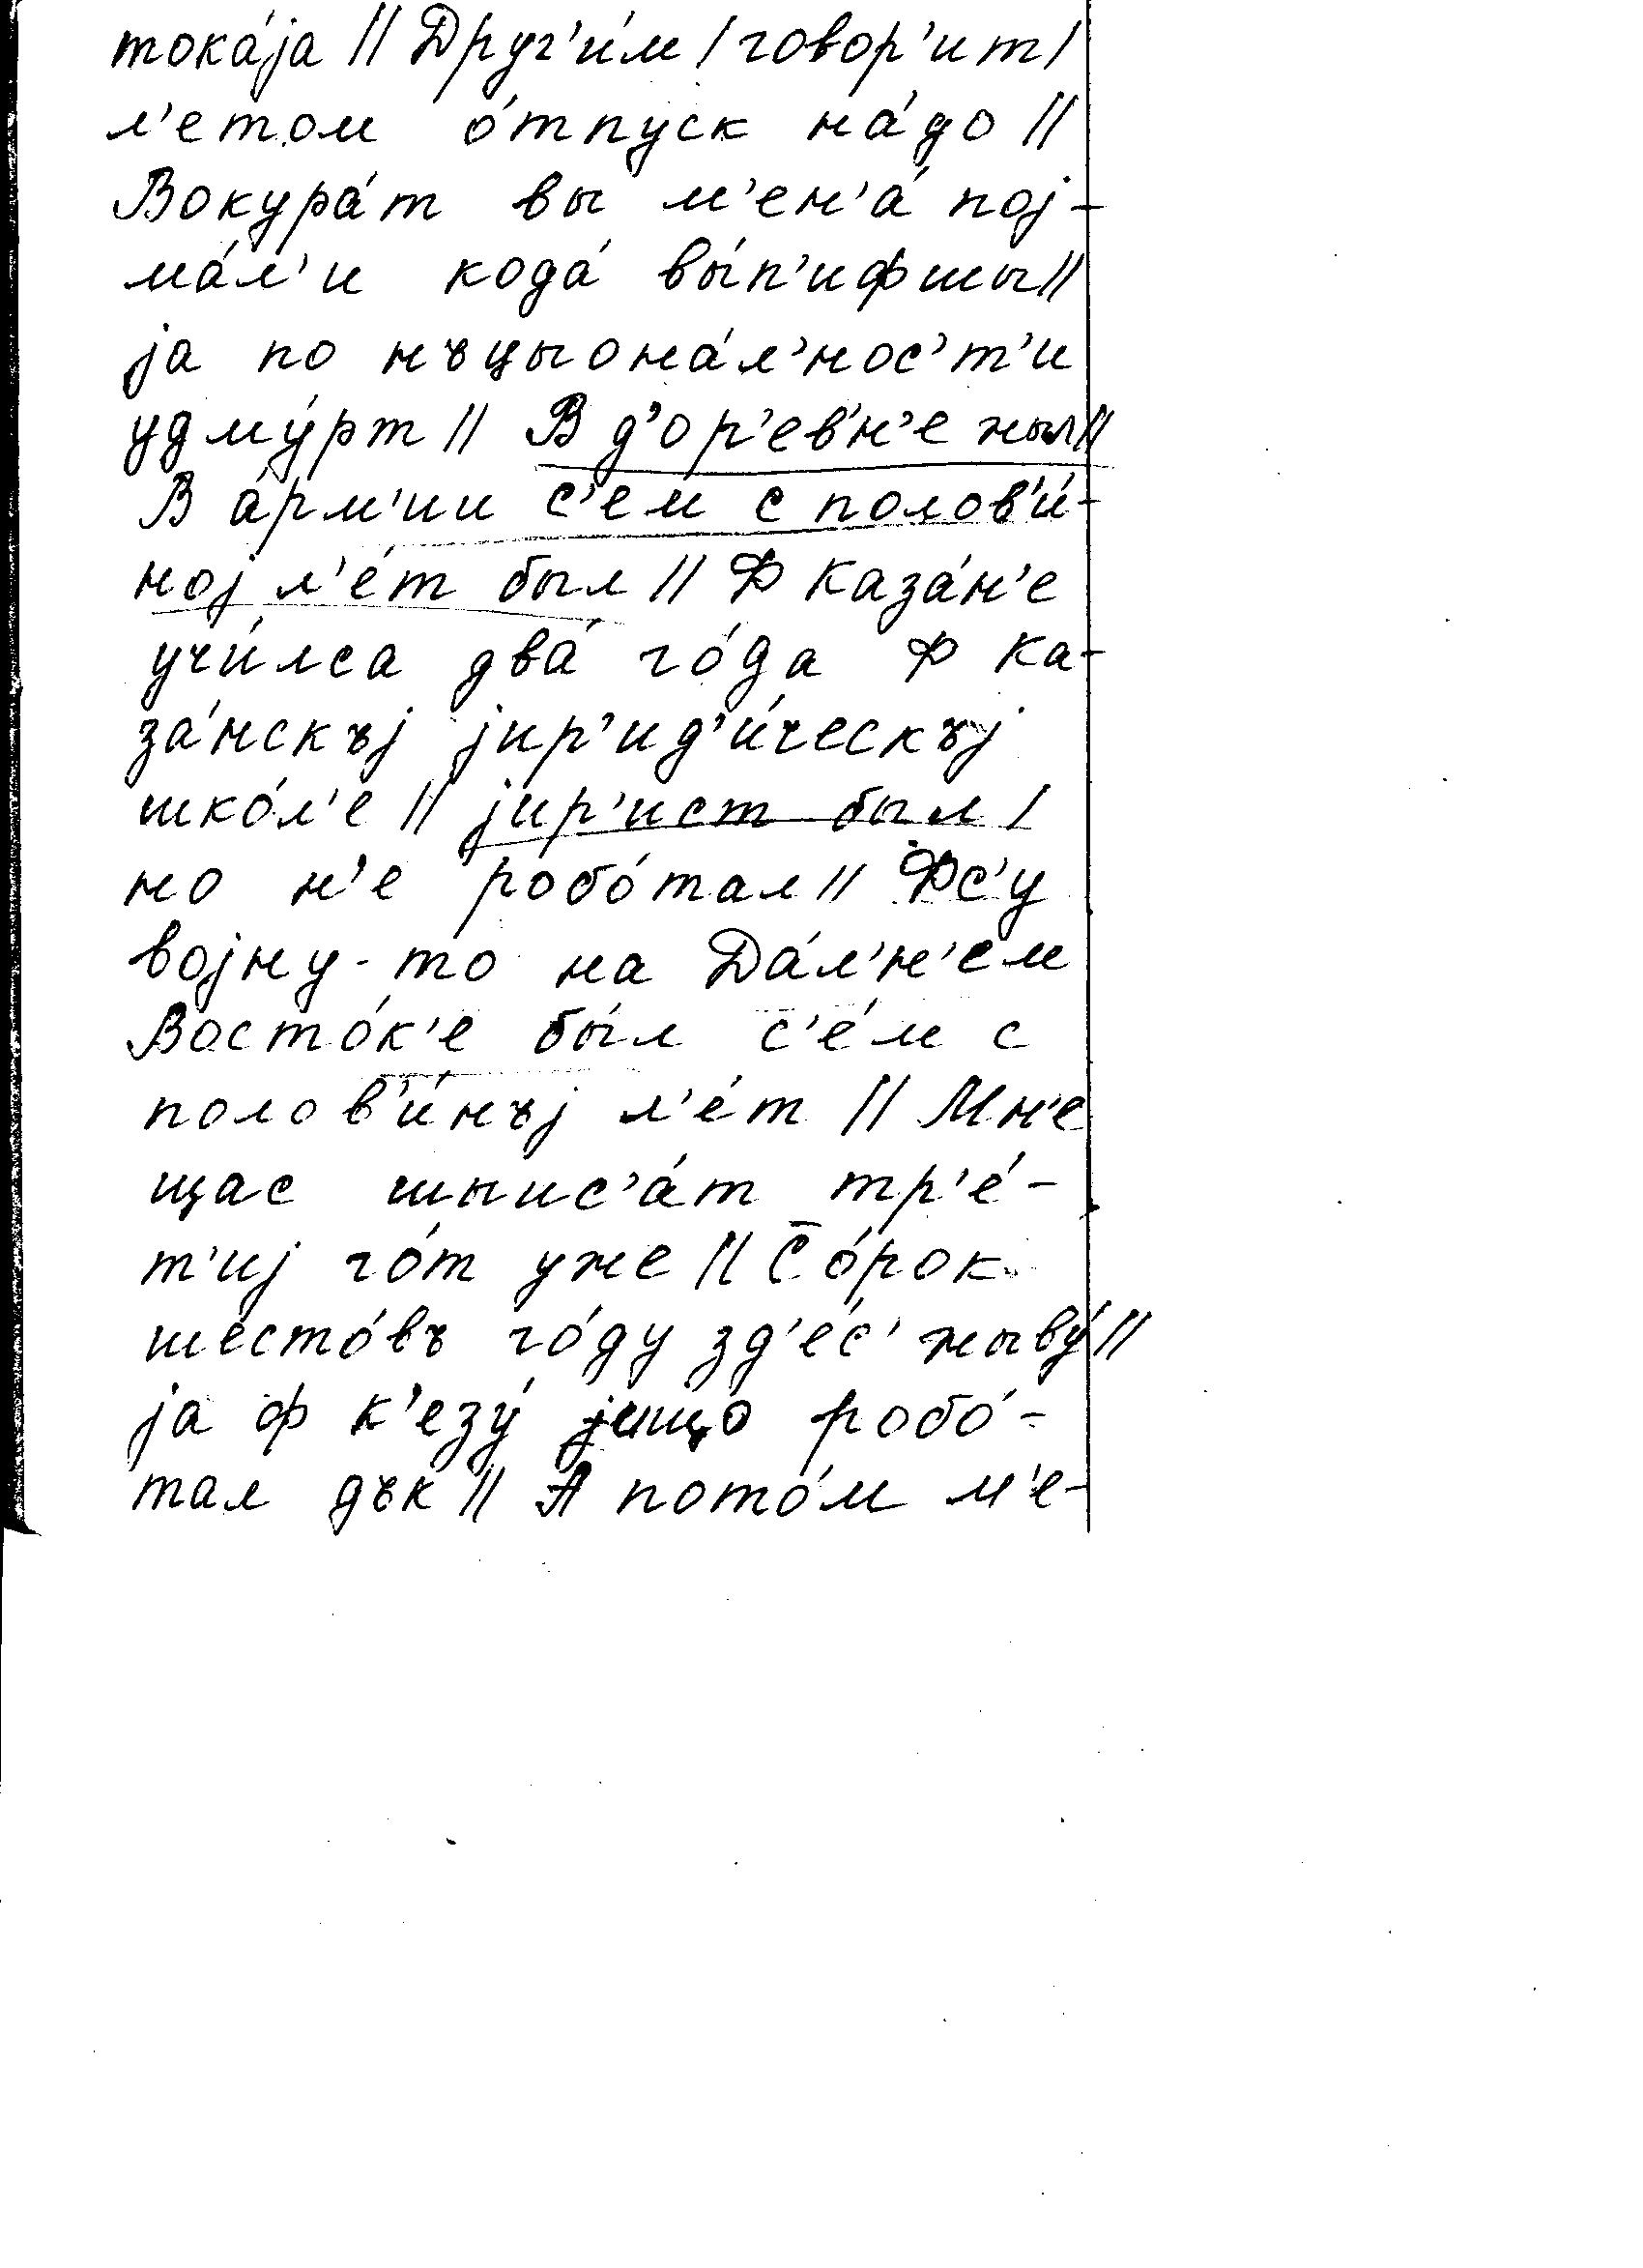 тока́jа || Друг'и́м | говор'ит |
л'етом о́тпуск на́до ||
Вокура́т вы м'ен'а́ поj-
ма́л'и кода́ вы́п'ифшы ||
jа по нъцыона́л'нос'т'и
удму́рт || В д'ор'е́вн'е жыл ||
В а́рм'ии с'ем с полов'и́-
ноj л'е́т был || Ф Каза́н'е
учи́лса два́ го́да Ф Ка-
за́нскъj jир'ид'и́ческъj
шко́л'е || jир'ист был |
но н'е робо́тал || Фс'у
воjну-то на Да́л'н'ем
Восто́к'е бы́л с'е́м с
полов'и́нъj л'е́т || Мн'е
щас шыис'а́т тр'е́-
т'иj го́т уже || Со́рок
шесто́въ го́ду зд'е́с' жыву́ ||
jа ф к'езу́ jищо́ робо́-
тал дък || А пото́м м'е-